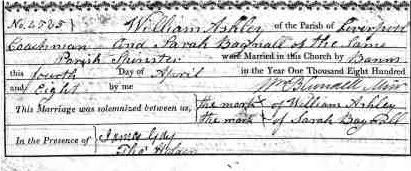 No. 2785 William Ashley of the Parish of Liverpool
Coachman And Sarah Bagnall of the Same
Parish Spinster were Married in this Church by Banns
this fourth Day of April in the Year One Thousand Eight Hundred
and Eight by me Wm Blundell Minr
This Marriage was solemnized between us, the mark X of William Ashley
the mark X of Sarah Bagnall
In the Presence of James Gay
Thos Holden